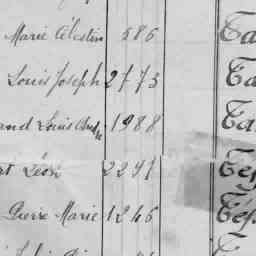 Marie Célestin 586 Ta
Louis Joseph 2773 Ta
and Louis 1988 Ta
rt Léon 2297 Tés
Pierre Marie 1246 Tés